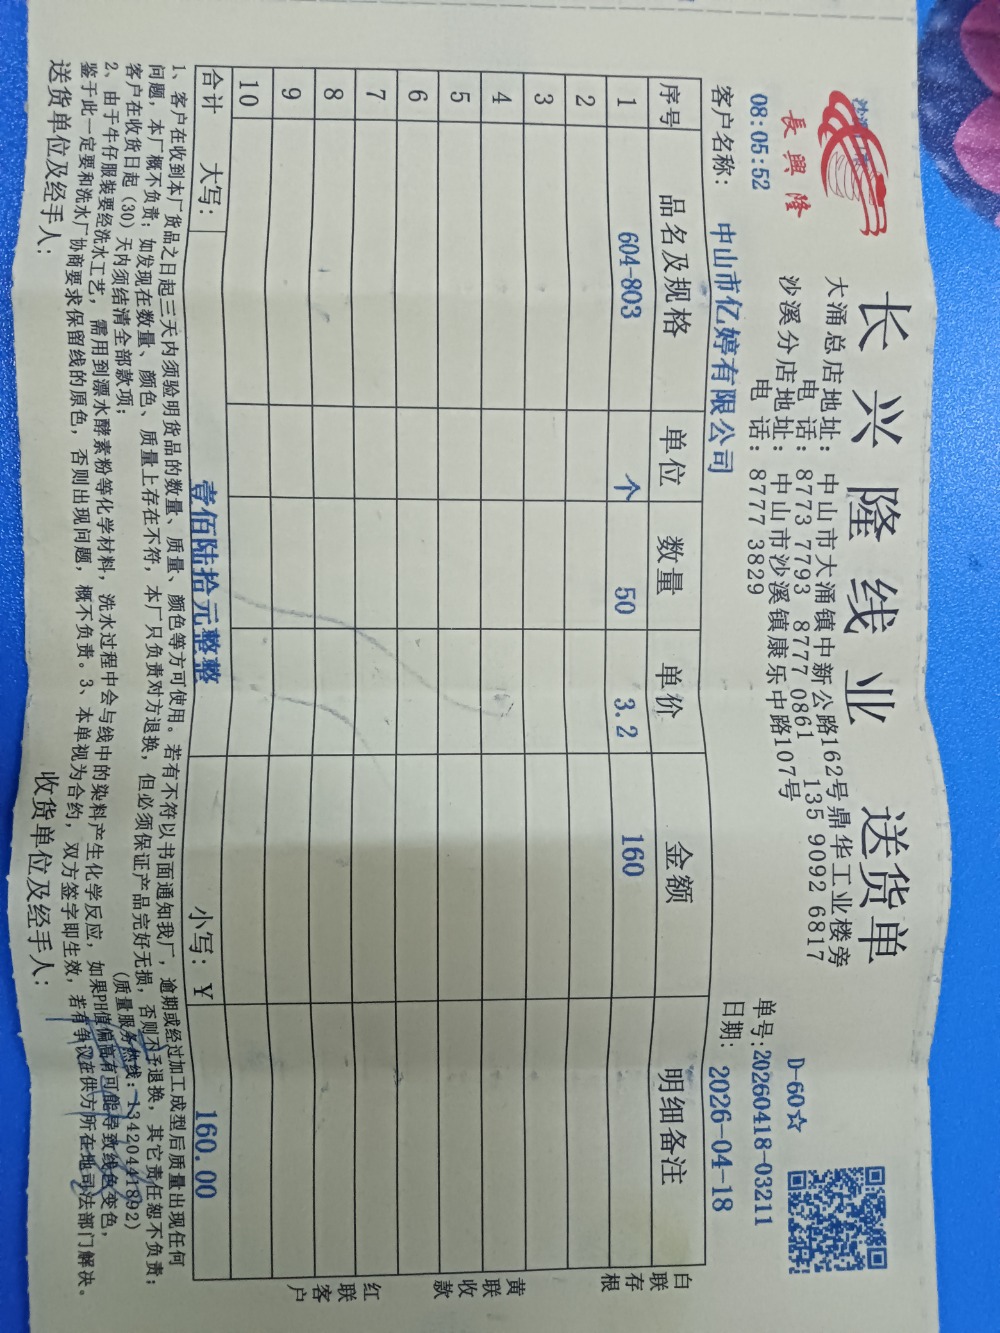 長興隆
08:05:52
长兴隆线业 送货单
大涌总店地址：中山市大涌镇中新公路162号鼎华工业楼旁
电 话：8773 7793 8777 0861 135 9092 6817
沙溪分店地址：中山市沙溪镇康乐中路107号
电 话：8777 3829
D-60☆
单号：20260418-03211
客户名称：中山市亿婷有限公司
日期：2026-04-18
序号 品名及规格 单位 数量 单价 金额 明细备注
1 604-803 个 50 3.2 160
2
3
4
5
6
7
8
9
10
合计 大写：壹佰陆拾元整整 小写：¥ 160.00
白联存根
黄联收款
红联客户
1、客户在收到本厂货品之日起三天内须验明货品的数量、质量、颜色等方可使用。若有不符以书面通知我厂，逾期或经过加工成型后质量出现任何
问题，本厂概不负责；如发现在数量、颜色、质量上存在不符，本厂只负责对方退换，但必须保证产品完好无损，否则不予退换，其它责任恕不负责；
客户在收货日起（30）天内须结清全部款项； （质量服务热线：13420441892）
2、由于牛仔服装要经洗水工艺，需用到漂水酵素粉等化学材料，洗水过程中会与线中的染料产生化学反应，如果PH值偏高有可能导致线色变色，
鉴于此一定要和洗水厂协商要求保留线的原色，否则出现问题，概不负责。3、本单视为合约，双方签字即生效，若有争议在供方所在地司法部门解决。
送货单位及经手人： 收货单位及经手人：